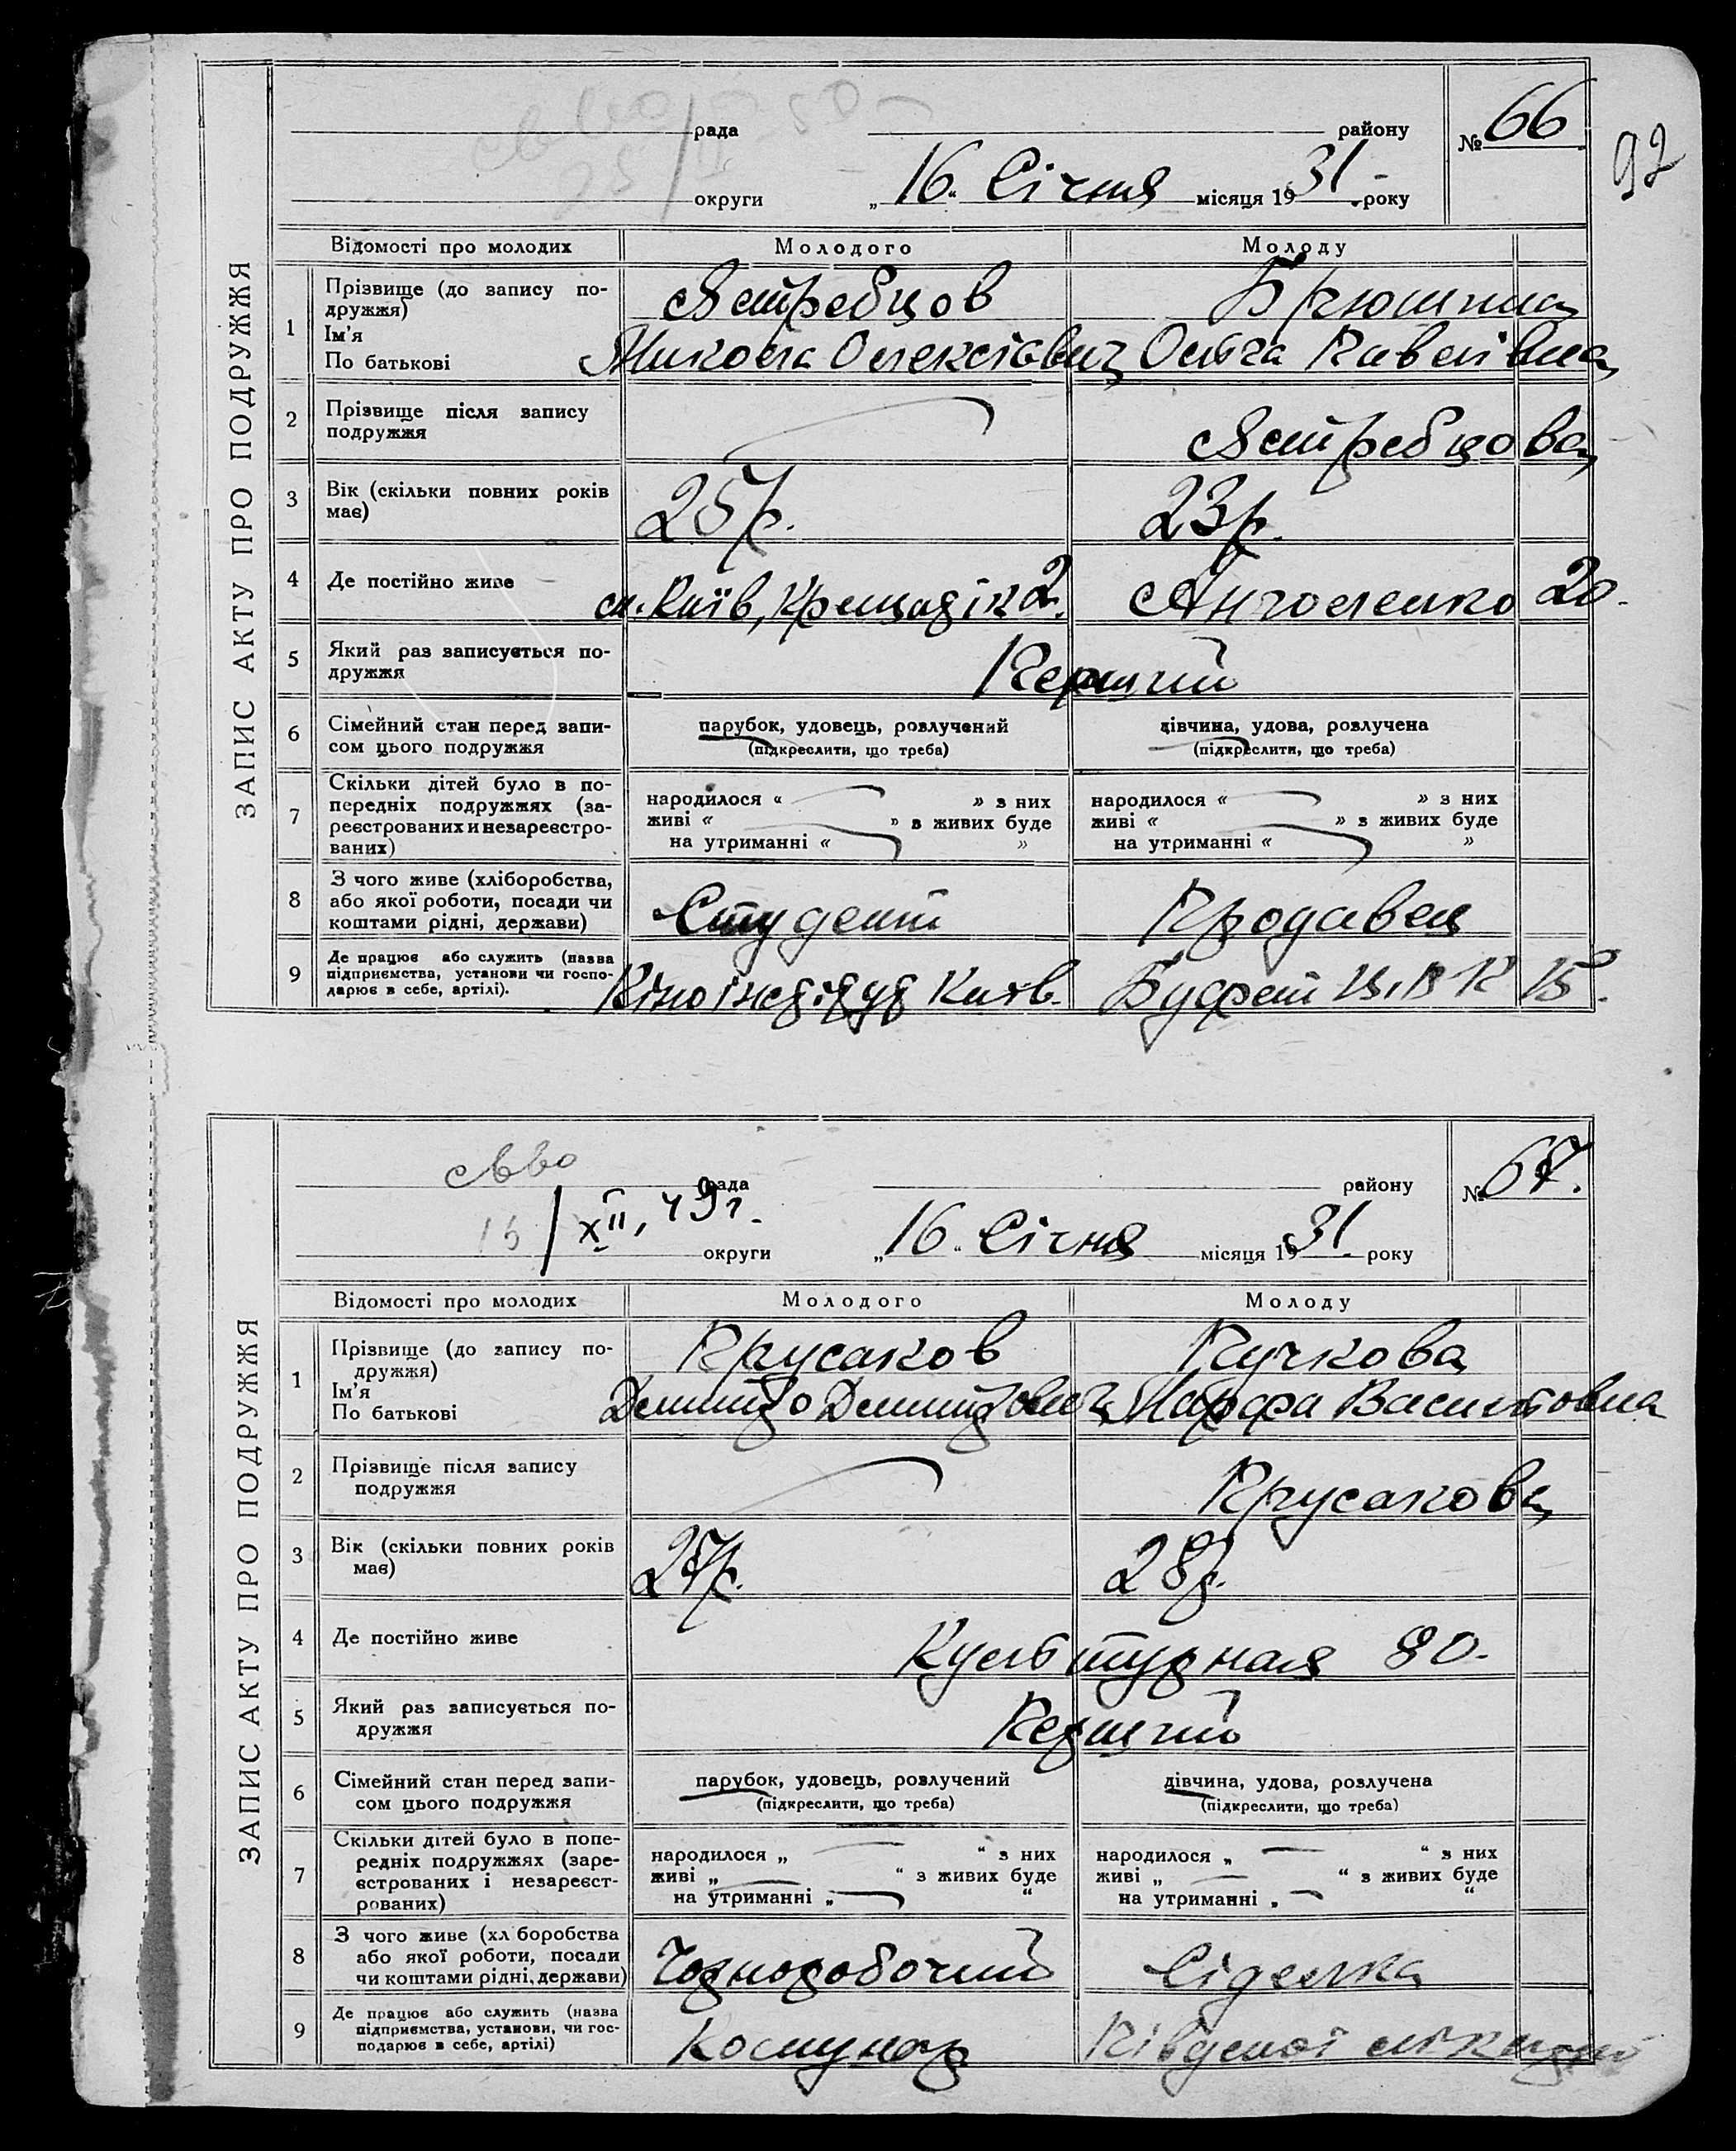 ЗАПИС АКТУ ПРО ПОДРУЖЖЯ
рада
району
№ 66
92
округи
„16“ Січня місяця 1931 року
Відомості про молодих
Молодого
Молоду
1
Прізвище (до запису по-
дружжя)
Ім'я
По батькові
Ястребцов
Микола Олексієвич
Ольга Павлівна
2
Прізвище після запису
подружжя
Ястребцова
3
Вік (скільки повних років
має)
25 р.
23 р.
4
Де постійно живе
м. Київ, Крещатік 2.
20.
5
Який раз записується по-
дружжя
Перший
6
Сімейний стан перед запи-
сом цього подружжя
парубок, удовець, розлучений
(підкреслити, що треба)
дівчина, удова, розлучена
(підкреслити, що треба)
7
Скільки дітей було в по-
передніх подружжях (за-
реєстрованих и незареєстро-
ваних)
народилося « » з них
живі « » з живих буде
на утриманні « »
народилося « » з них
живі « » з живих буде
на утриманні « »
8
З чого живе (хліборобства,
або якої роботи, посади чи
коштами рідні, держави)
Студент
Продавец
9
Де працює або служить (назва
підприємства, установи чи госпо-
дарює в себе, артілі).
Київ.
Буфет
ЗАПИС АКТУ ПРО ПОДРУЖЖЯ
св-во
рада
району
№ 67.
15/XII, 49 г.
округи
„16“ Січня місяця 1931 року
Відомості про молодих
Молодого
Молоду
1
Прізвище (до запису по-
дружжя)
Ім'я
По батькові
Прусаков
Пучкова
Марфа
2
Прізвище після запису
подружжя
Прусакова
3
Вік (скільки повних років
має)
27 р.
28 р.
4
Де постійно живе
Культурная 80.
5
Який раз записується по-
дружжя
Перший
6
Сімейний стан перед запи-
сом цього подружжя
парубок, удовець, розлучений
(підкреслити, що треба)
дівчина, удова, розлучена
(підкреслити, що треба)
7
Скільки дітей було в попе-
редніх подружжях (заре-
єстрованих і незареєст-
рованих)
народилося „ “ з них
живі „ “ з живих буде
на утриманні „ “
народилося „ “ з них
живі „ “ з живих буде
на утриманні „ “
8
З чого живе (хл боробства
або якої роботи, посади
чи коштами рідні, держави)
Чорноробочий
Сіделка
9
Де працює або служить (назва
підприємства, установи, чи гос-
подарює в себе, артілі)
Комунар